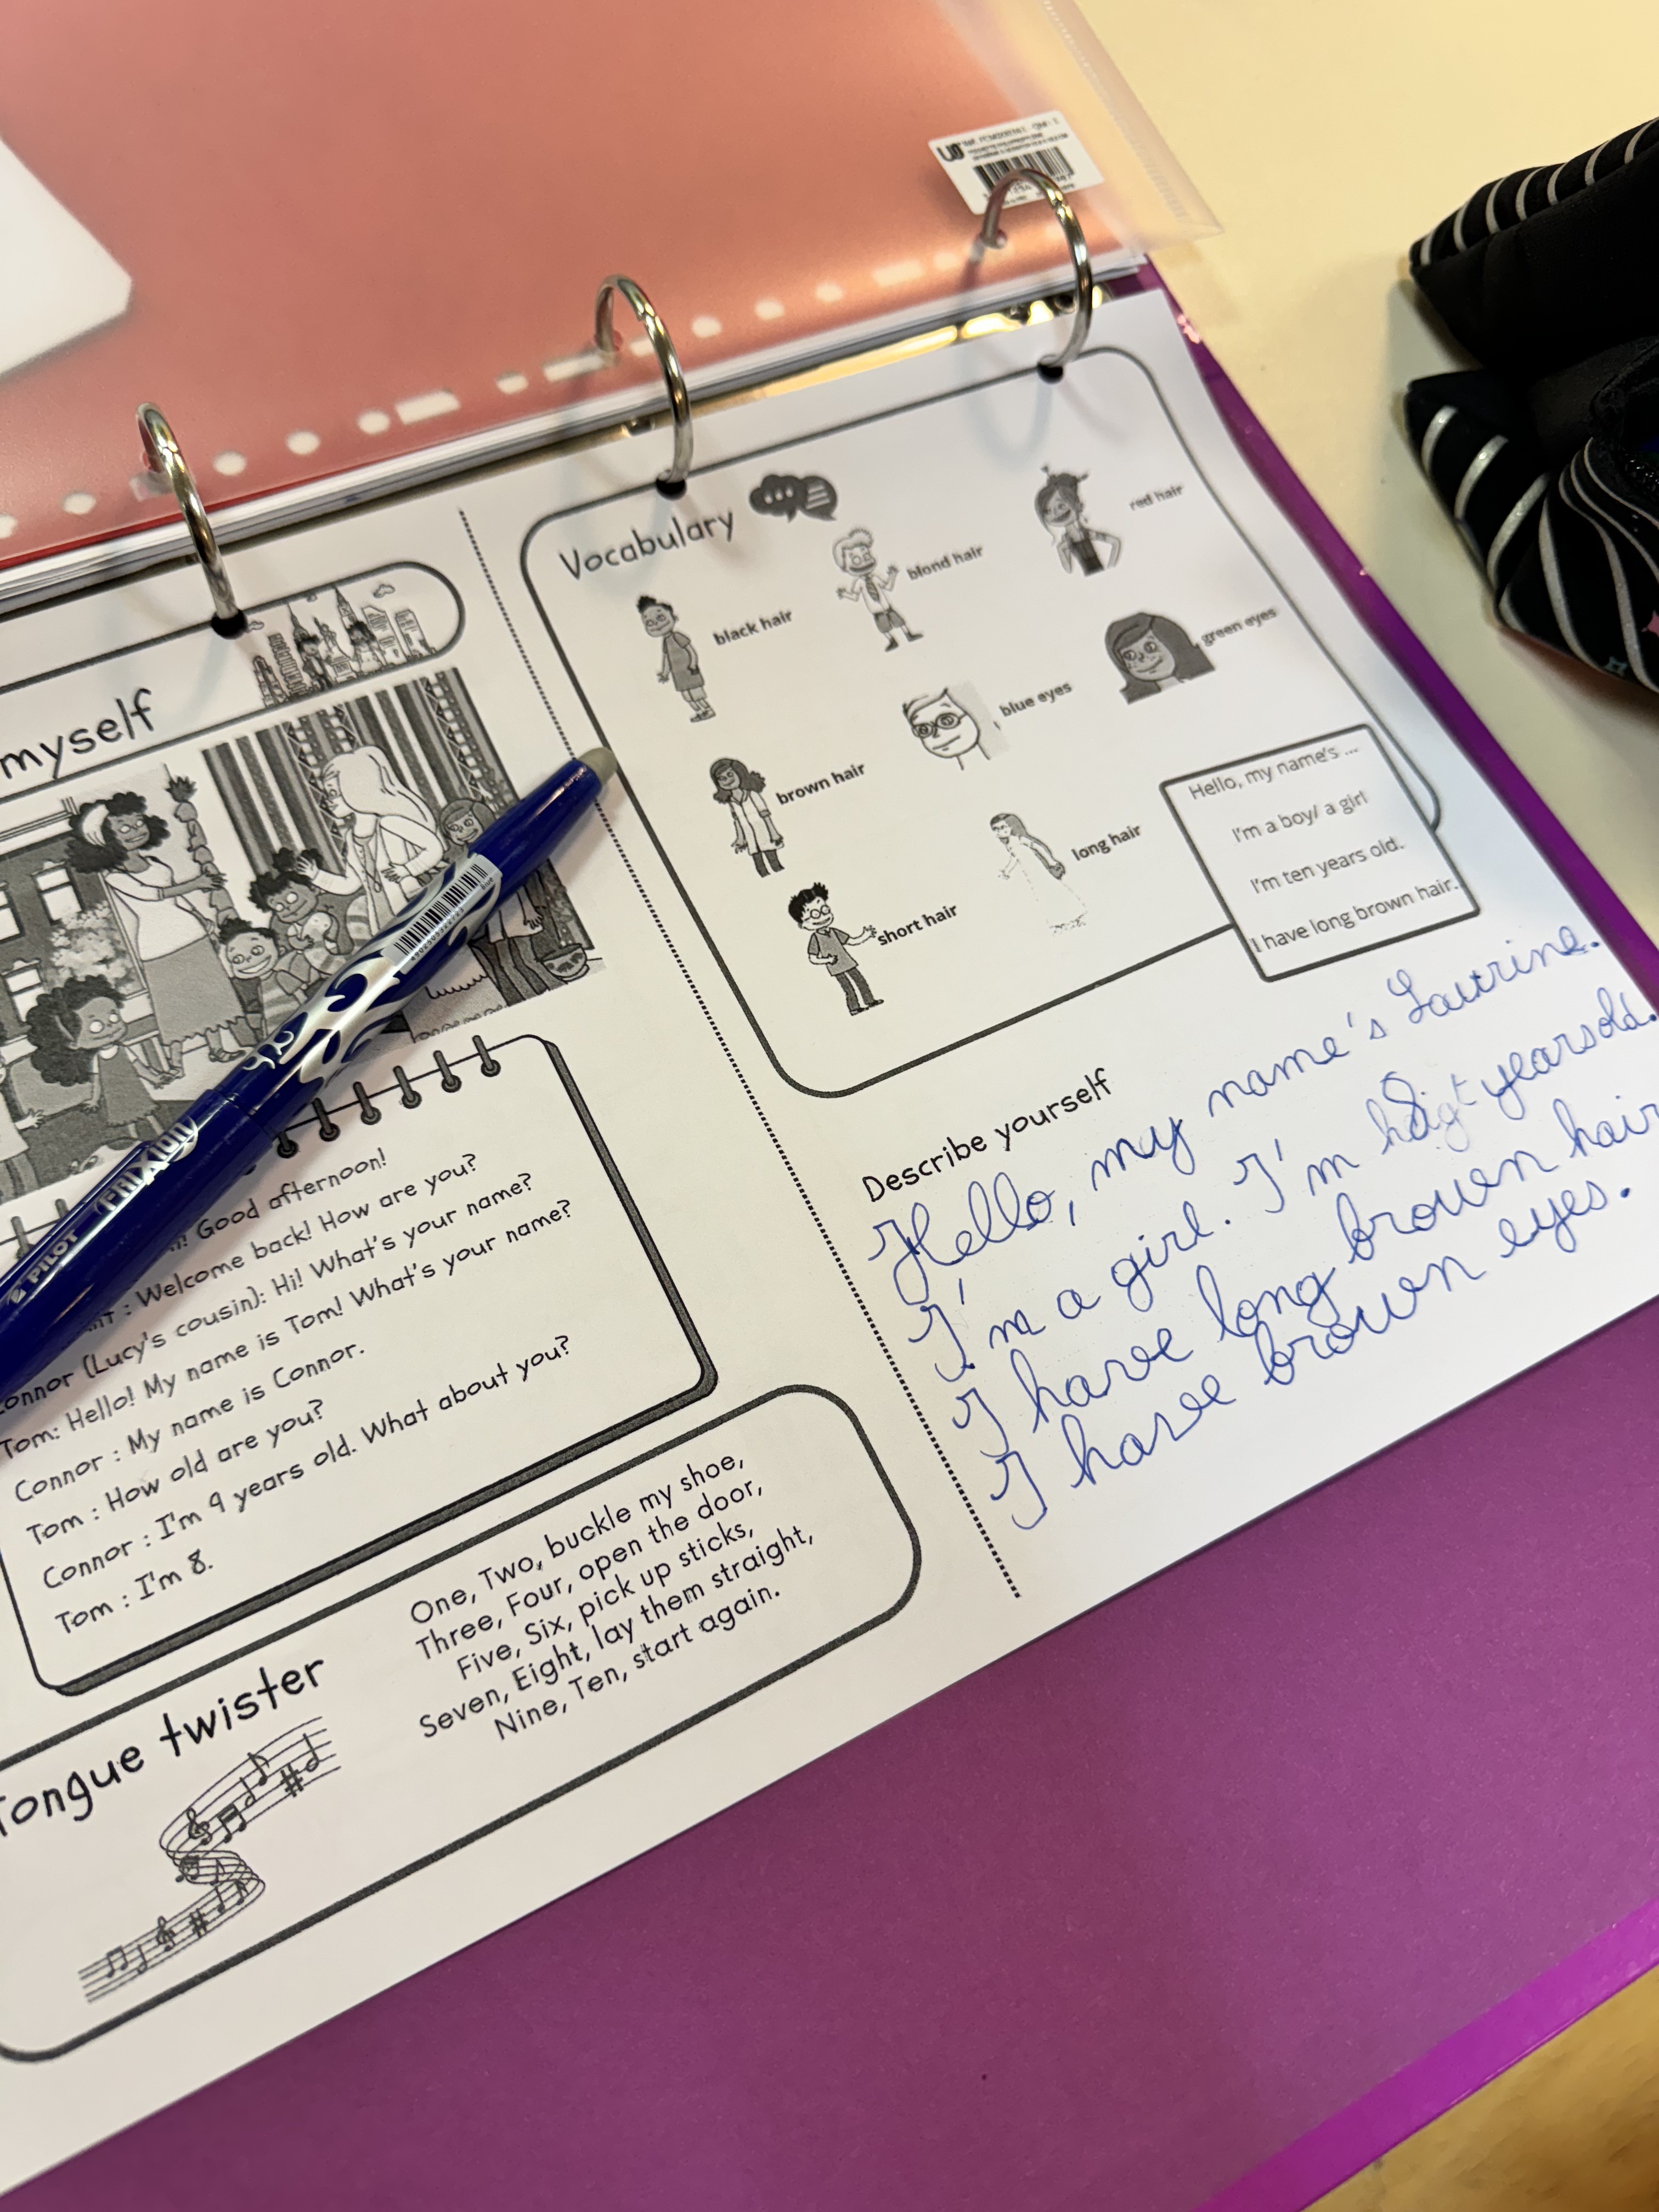 myself
Hi! Good afternoon!
: Welcome back! How are you?
Connor (Lucy's cousin): Hi! What's your name?
Tom: Hello! My name is Tom! What's your name?
Connor : My name is Connor.
Tom : How old are you?
Connor : I'm 9 years old. What about you?
Tom : I'm 8.
Tongue twister
One, Two, buckle my shoe,
Three, Four, open the door,
Five, Six, pick up sticks,
Seven, Eight, lay them straight,
Nine, Ten, start again.
PILOT FRIXION
Blue
Vocabulary
black hair
blond hair
red hair
brown hair
blue eyes
green eyes
short hair
long hair
Hello, my name's ...
I'm a boy/ a girl
I'm ten years old.
I have long brown hair.
Describe yourself
Hello, my name's Laurine.
I'm a girl. I'm 8 years old.
I have long brown hair
I have brown eyes.